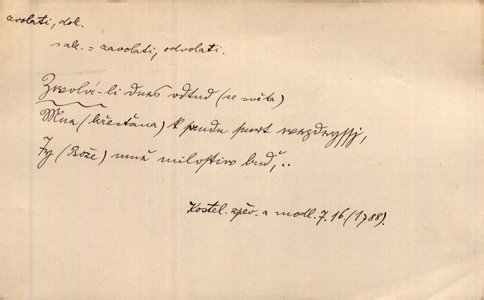 zvolati, dok.
s ak. = zavolati, odvolati.
Zwolá-li dnes odtud (se světa)
Mne (křesťana) k saudu smrt nezdegssj,
Ty (Bože) mně milostiw buď,..
Kostel. zpěv. a modl. J. 16 (1788).